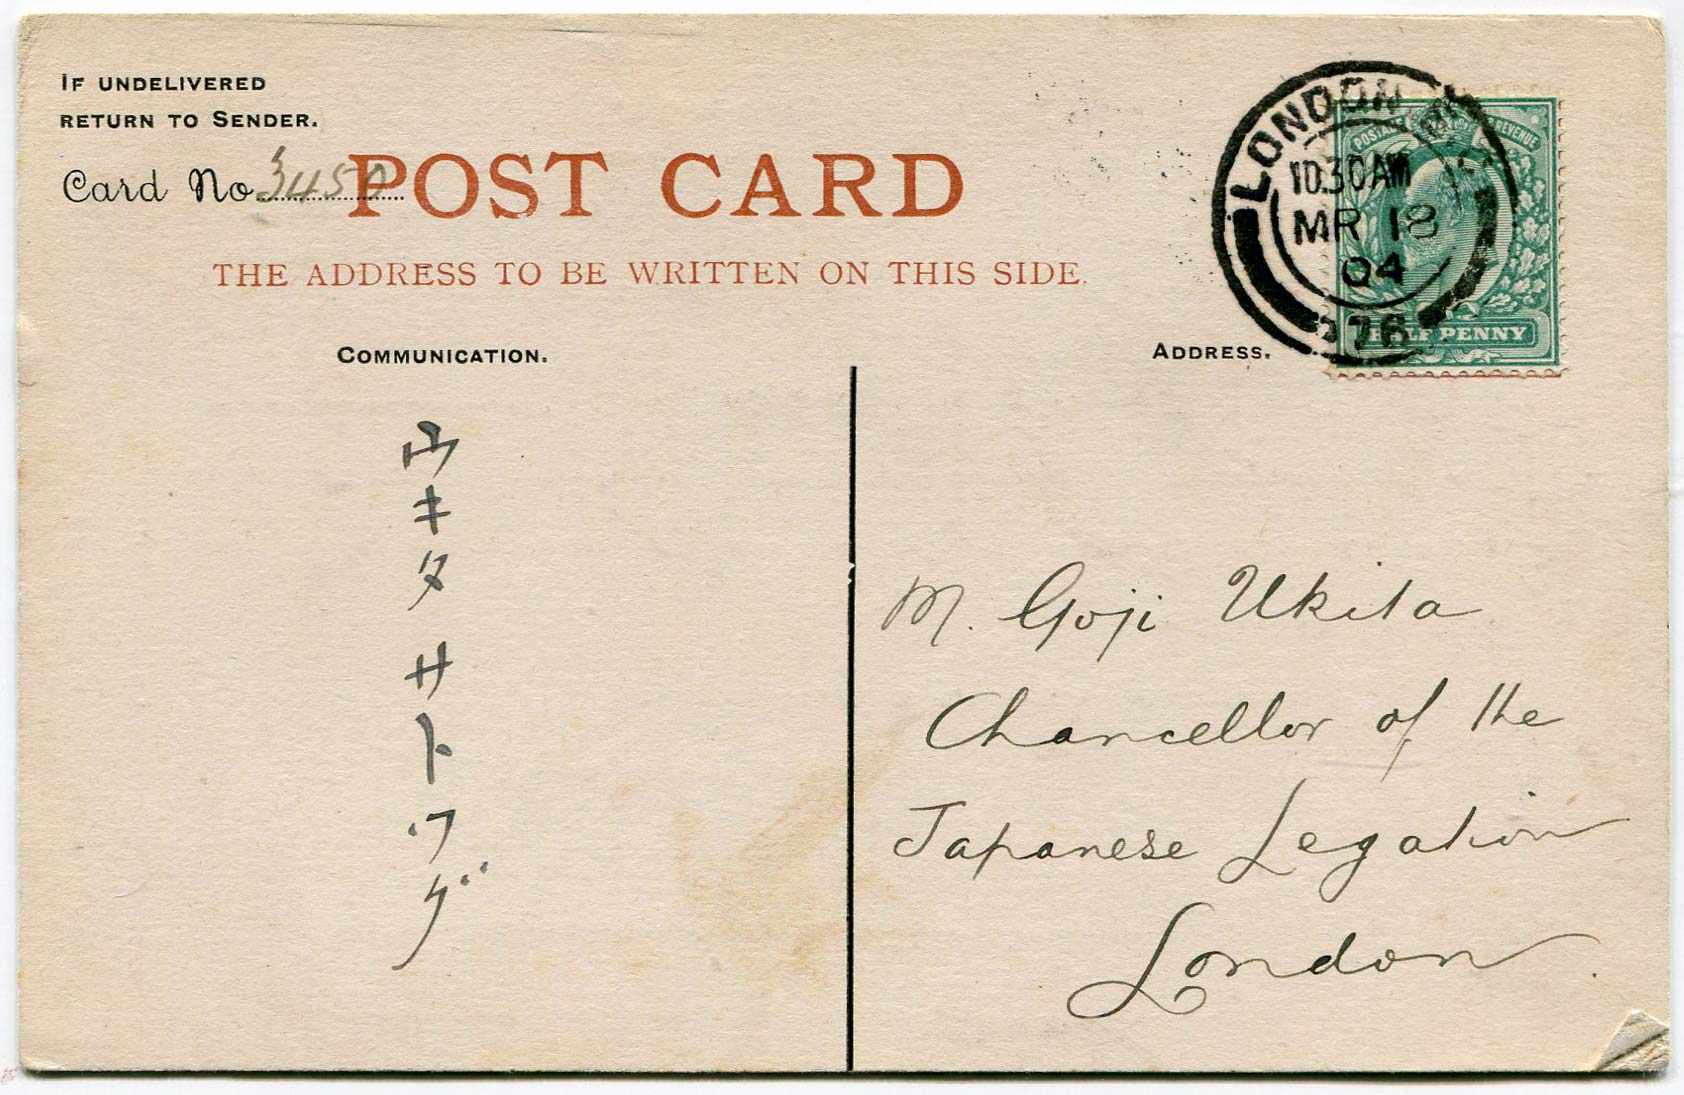 IF UNDELIVERED
RETURN TO SENDER.
Card No 3450
POST CARD
THE ADDRESS TO BE WRITTEN ON THIS SIDE.
COMMUNICATION.
ADDRESS.
LONDON
10.30AM
MR 18
04
76
POSTAGE REVENUE
HALF PENNY
ウキタ
サトツグ
M. Goji Ukita
Chancellor of the
Japanese Legation
London.